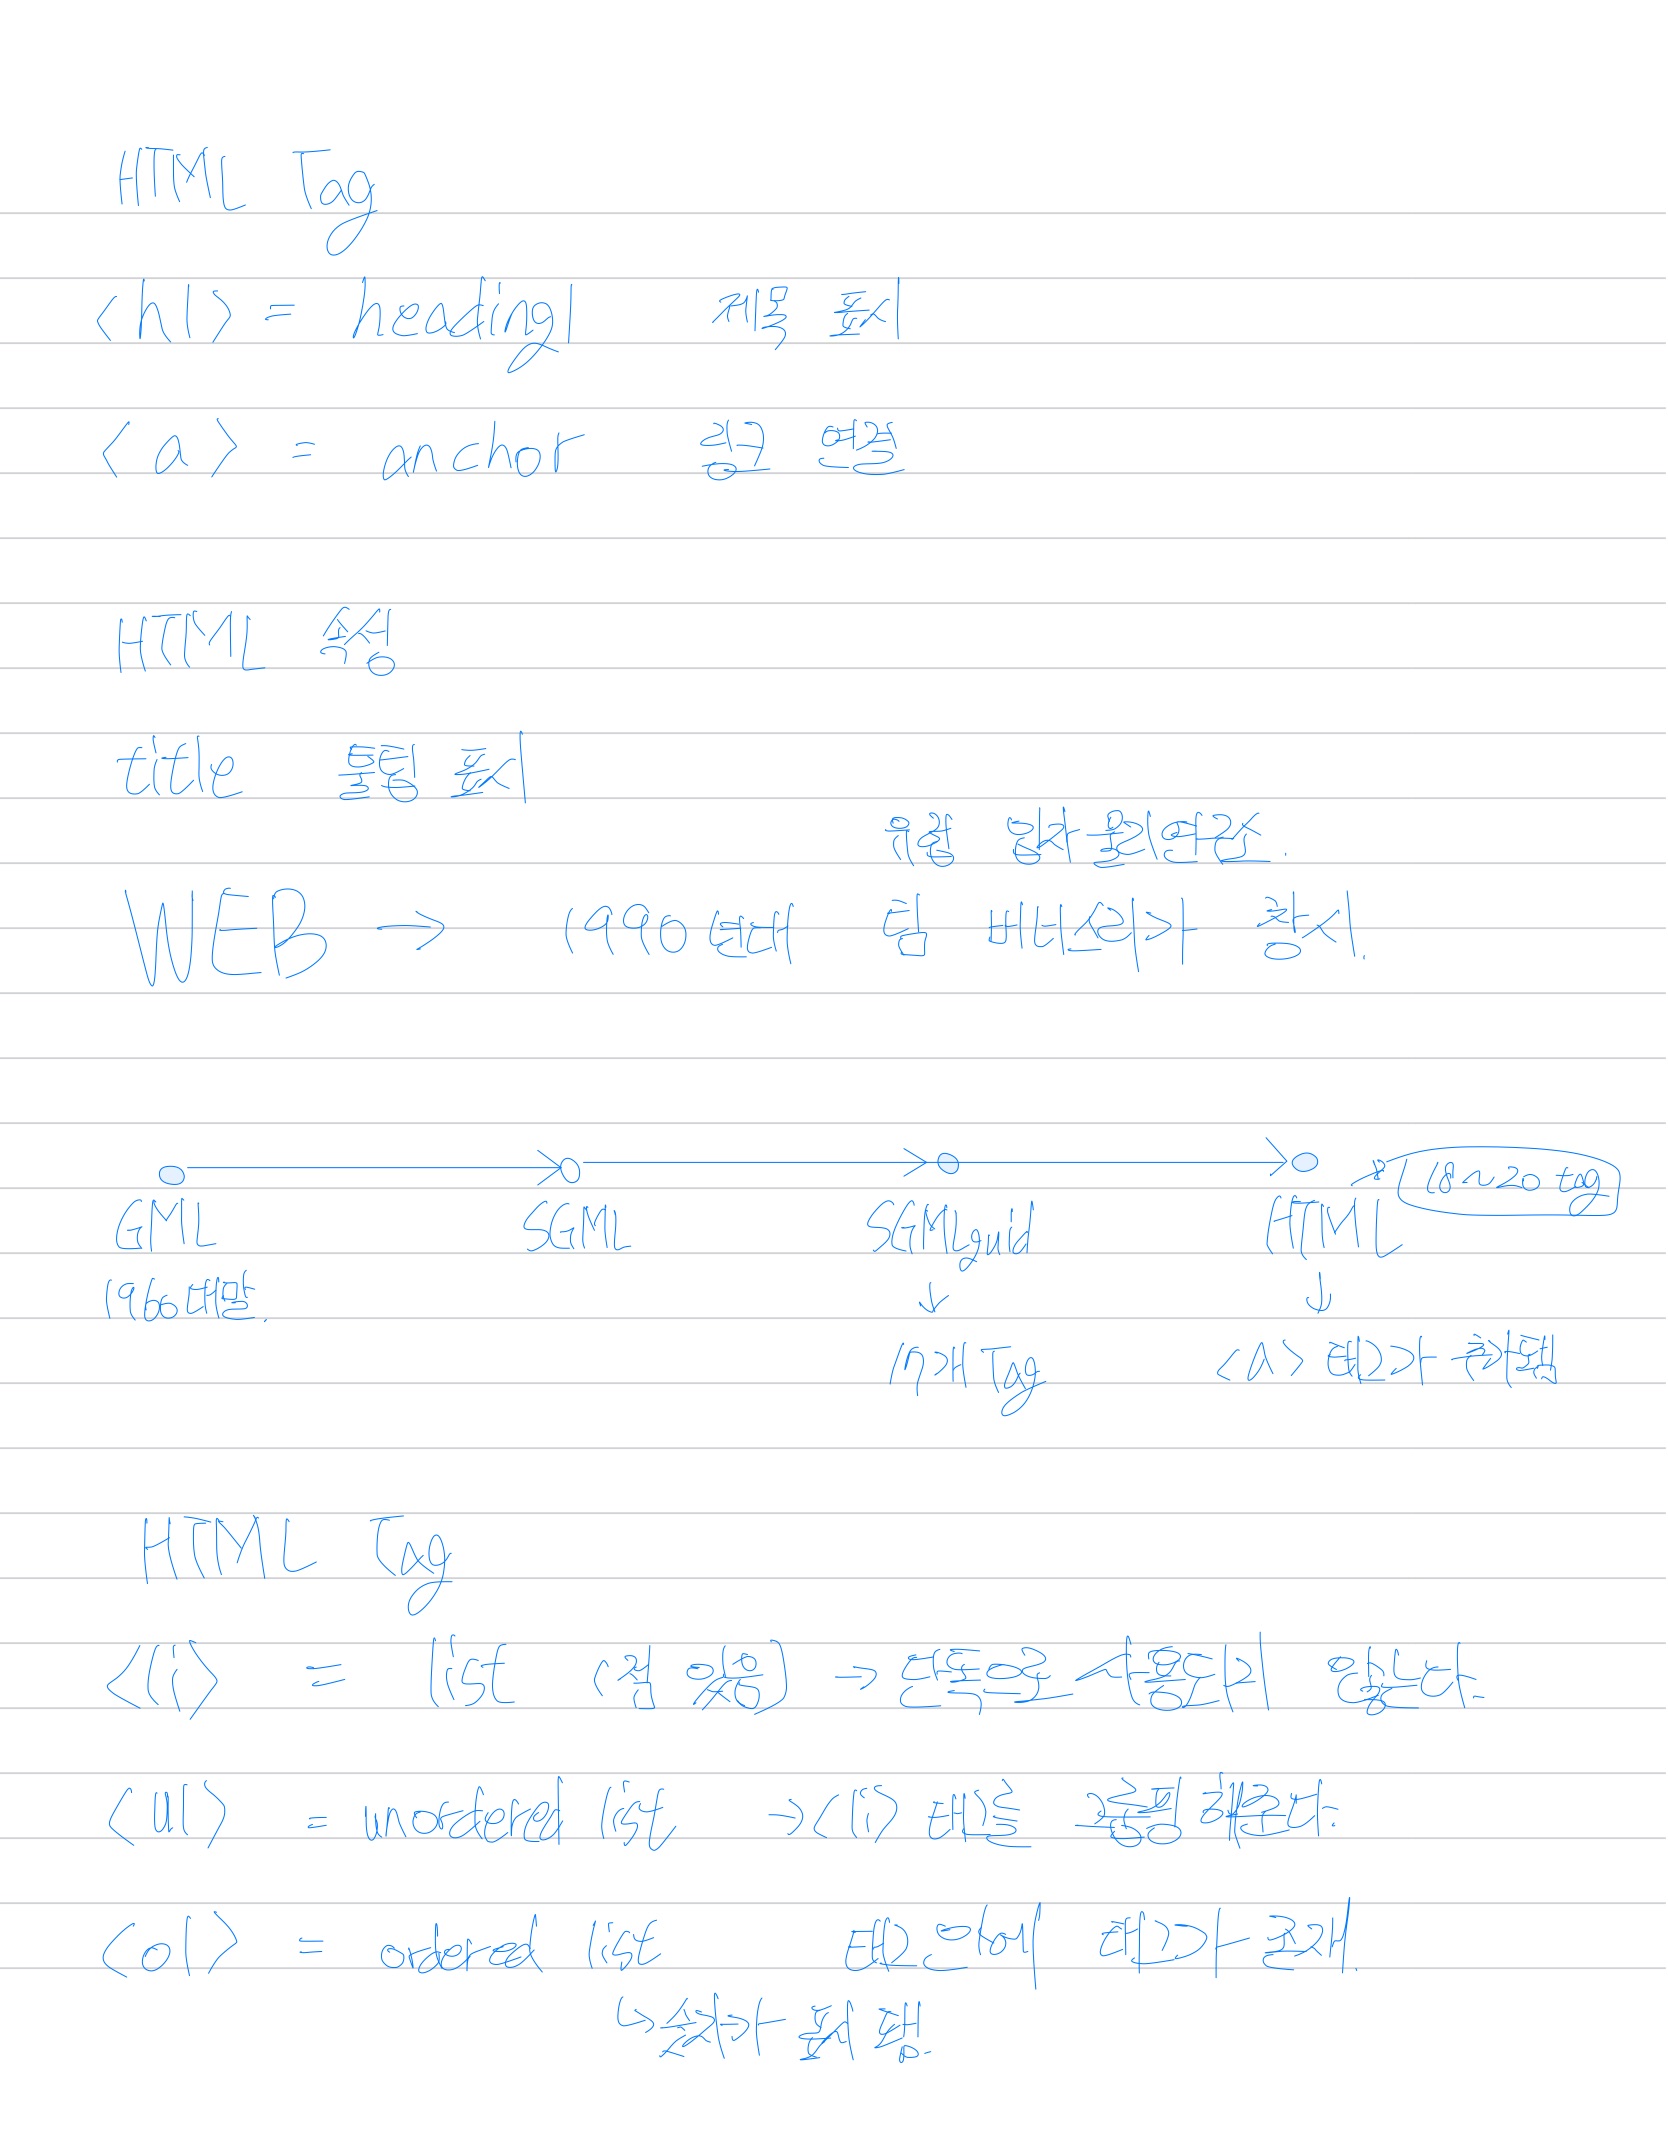 HTML Tag
<h1> = heading1 제목 표시
<a> = anchor 링크 연결
HTML 속성
title 툴팁 표시
유럽 입자 물리연구소.
WEB → 1990년대 팀 버너스리가 창시.
18~20 tag
GML SGML SGMLguid HTML
1960대말. ↓ ↓
17개 Tag <a> 태그가 추가됨
HTML Tag
<li> = list (점 있음) → 단독으로 사용되지 않는다.
<ul> = unordered list → <li> 태그를 그룹핑 해준다.
<ol> = ordered list 태그 안에 태그가 존재.
↳ 숫자가 표시 됨.